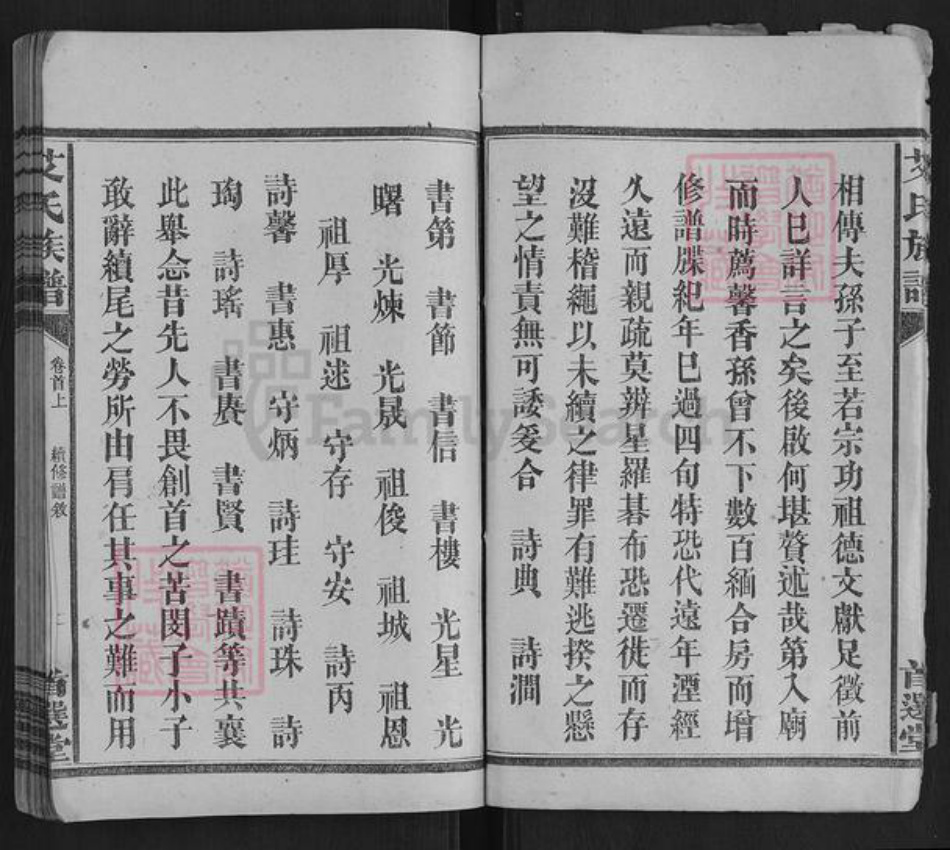 相傳夫孫子至若宗功祖德文獻足徵前
人巳詳言之矣後啟何堪贅述哉第入廟
而時薦馨香孫曾不下數百緬合房而增
修譜牒紀年巳過四旬特恐代遠年湮經
久遠而親疏莫辨星羅碁布恐遷徙而存
沒難稽繩以未續之律罪有難逃揆之懸
望之情責無可諉爰合 詩典 詩澗
書第 書節 書信 書樓 光星 光
曙 光煉 光晟 祖俊 祖城 祖恩
祖厚 祖逑 守存 守安 詩丙
詩馨 書惠 守炳 詩珪 詩珠 詩
瑪 詩瑤 書賡 書賢 書蹟等共襄
此舉念昔先人不畏創首之苦閔子小子
敢辭續尾之勞所由肩任其事之難而用
艾氏族譜
卷首上
續修譜敘
首選堂
艾氏族譜
首選堂
FamilySearch